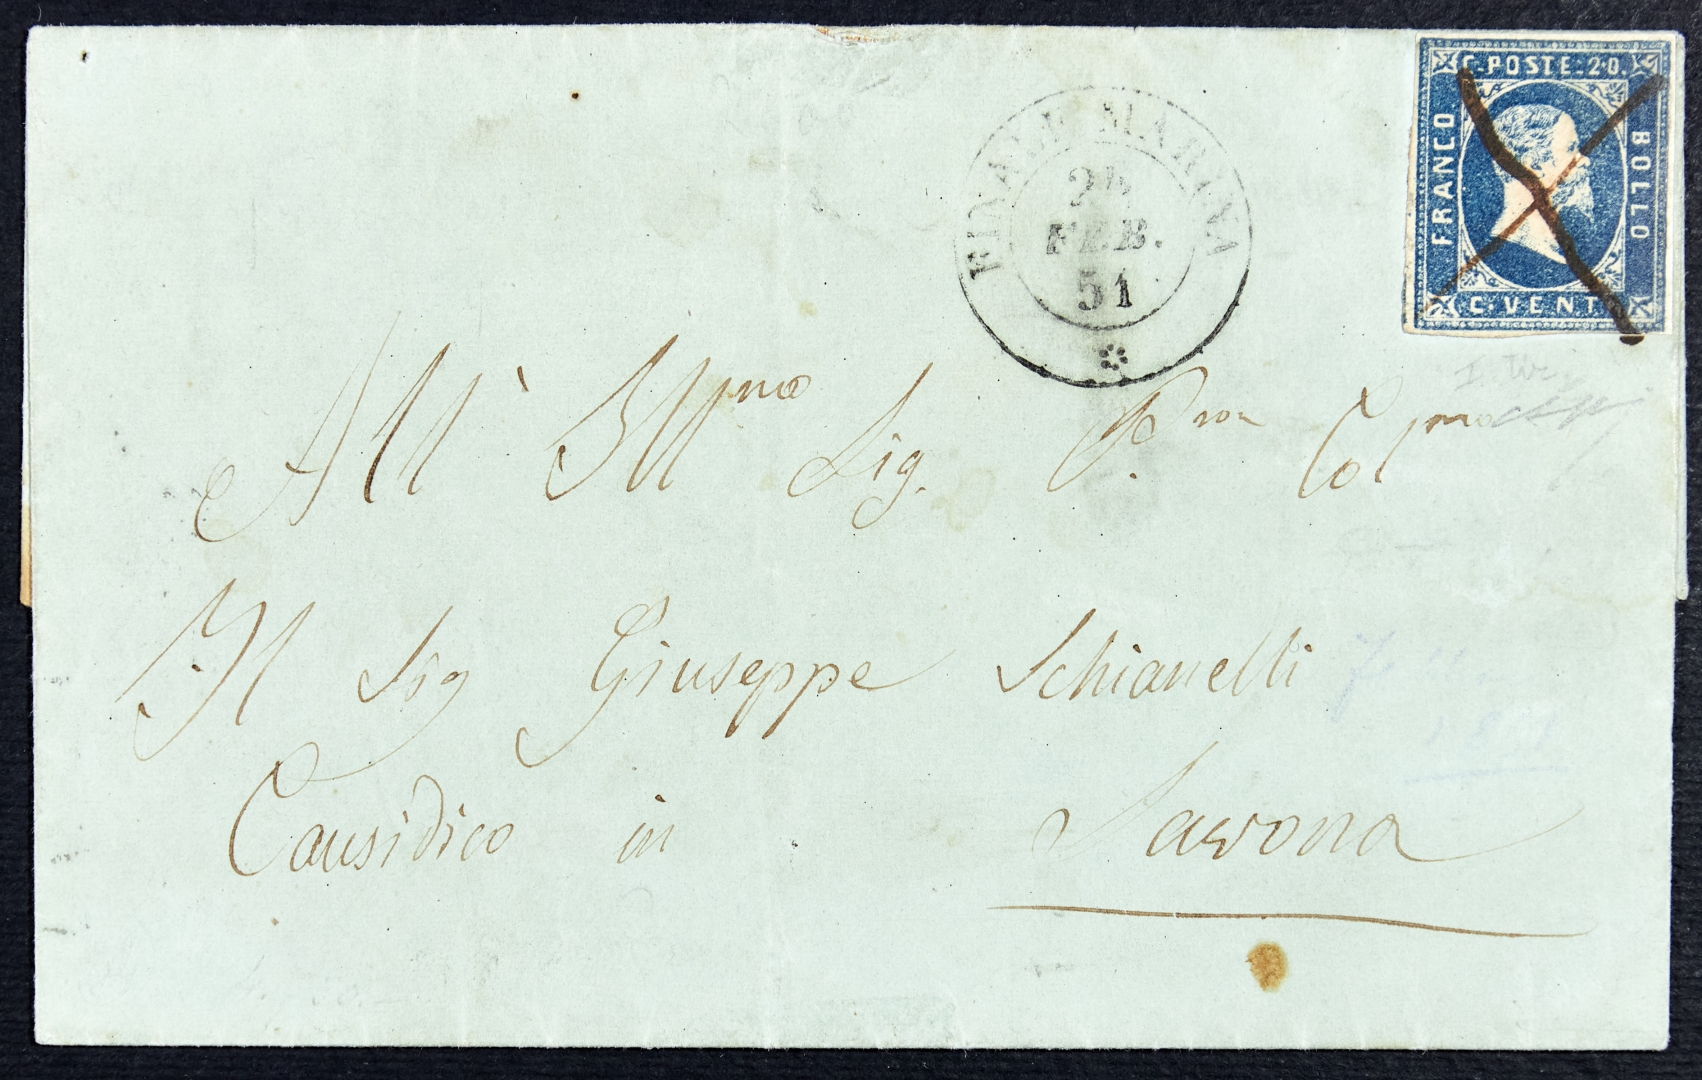 C. POSTE. 20.
FRANCO
BOLLO
C. VENTI
FINALE MARINA
FEB.
51
All' Ill.mo Sig. P.ron Col.mo
Il Sig Giuseppe Schianelli
Causidico in Savona